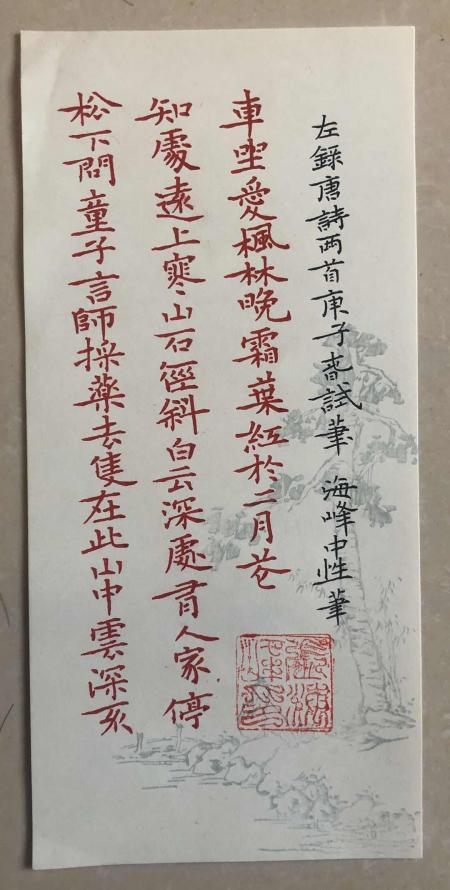 松下問童子言師採藥去隻在此山中雲深不
知處遠上寒山石徑斜白云深處有人家停
車坐愛楓林晚霜葉紅於二月花
左錄唐詩两首庚子春試筆 海峰中性筆